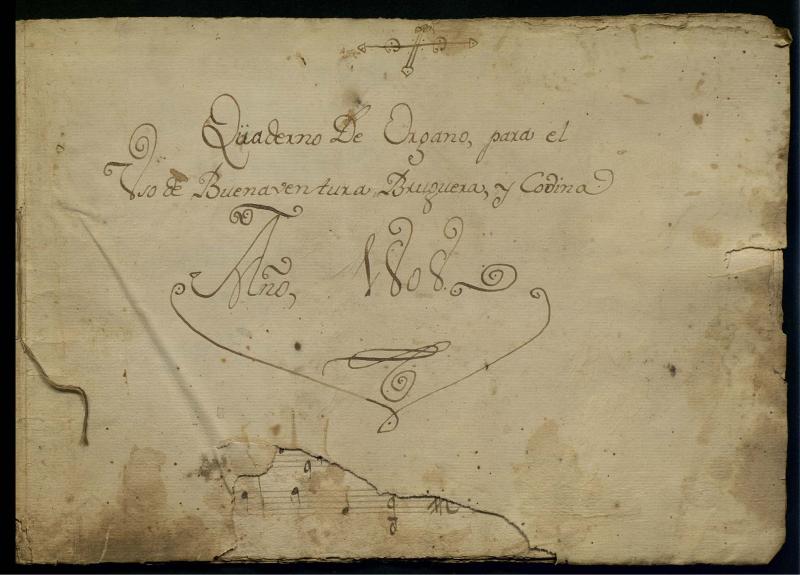 Qüaderno De Organo, para el
Vso de Buenaventura Bruguera, y Codina
Año, 1808.